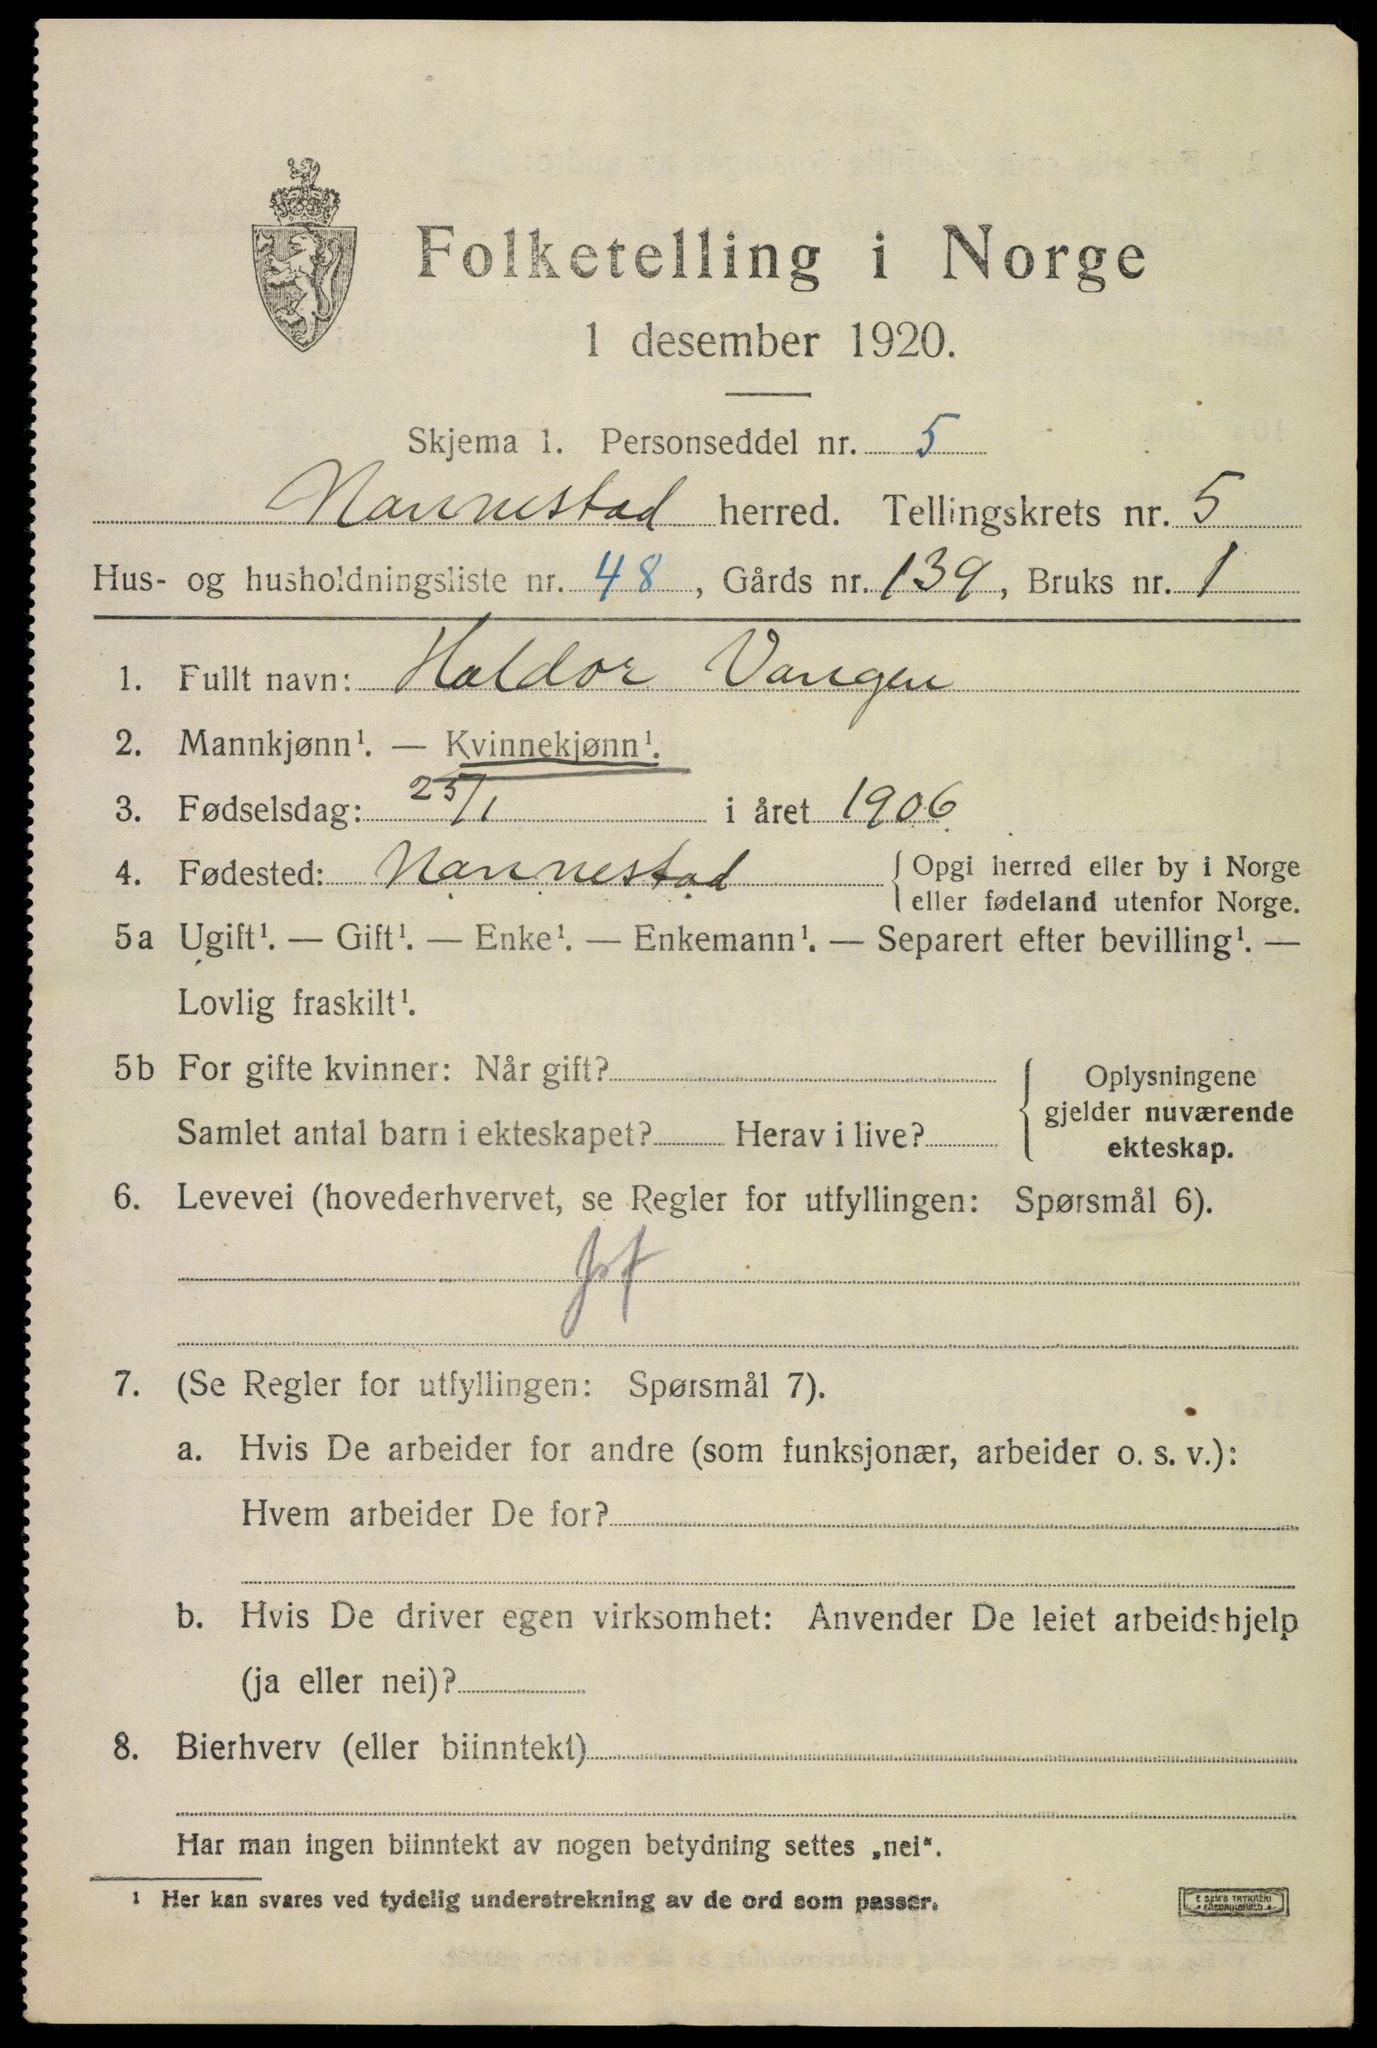 Folketelling i Norge
1 desember 1920.
Skjema 1. Personseddel nr. 5
Nannestad herred. Tellingskrets nr. 5
Hus- og husholdningsliste nr. 48, Gårds nr. 139, Bruks nr. 1
1. Fullt navn: Haldor Vangen
2. Mannkjønn¹. — Kvinnekjønn¹.
3. Fødselsdag: 25/1 i året 1906
4. Fødested: Nannestad { Opgi herred eller by i Norge
eller fødeland utenfor Norge.
5a Ugift¹. — Gift¹. — Enke¹. — Enkemann¹. — Separert efter bevilling¹. —
Lovlig fraskilt¹.
5b For gifte kvinner: Når gift?
Samlet antal barn i ekteskapet? Herav i live?
Oplysningene
gjelder nuværende
ekteskap.
6. Levevei (hovederhvervet, se Regler for utfyllingen: Spørsmål 6).
7. (Se Regler for utfyllingen: Spørsmål 7).
a. Hvis De arbeider for andre (som funksjonær, arbeider o. s. v.):
Hvem arbeider De for?
b. Hvis De driver egen virksomhet: Anvender De leiet arbeidshjelp
(ja eller nei)?
8. Bierhverv (eller biinntekt)
Har man ingen biinntekt av nogen betydning settes „nei“.
¹ Her kan svares ved tydelig understrekning av de ord som passer.